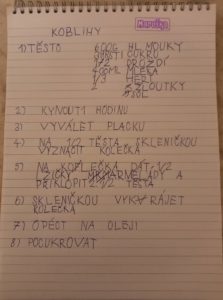 Marvilka
KOBLIHY
1) TĚSTO 600G HL. MOUKY
CUKRU
1/2 DROŽDÍ
400ML MLÉKA
1/3 HERY
2 ŽLOUTKY
SŮL
2) KYNOUT 1 HODINU
3) VYVÁLET PLACKU
4) NA 1/2 TĚSTA SKLENIČKOU
VYZNAČIT KOLEČKA
5) NA KOLEČKA DÁT 1/2
LŽIČKY MARMELÁDY A
PŘIKLOPIT 2. 1/2 TĚSTA
6) SKLENIČKOU VYKRÁJET
KOLEČKA
7) OPÉCT NA OLEJI
8) POCUKROVAT